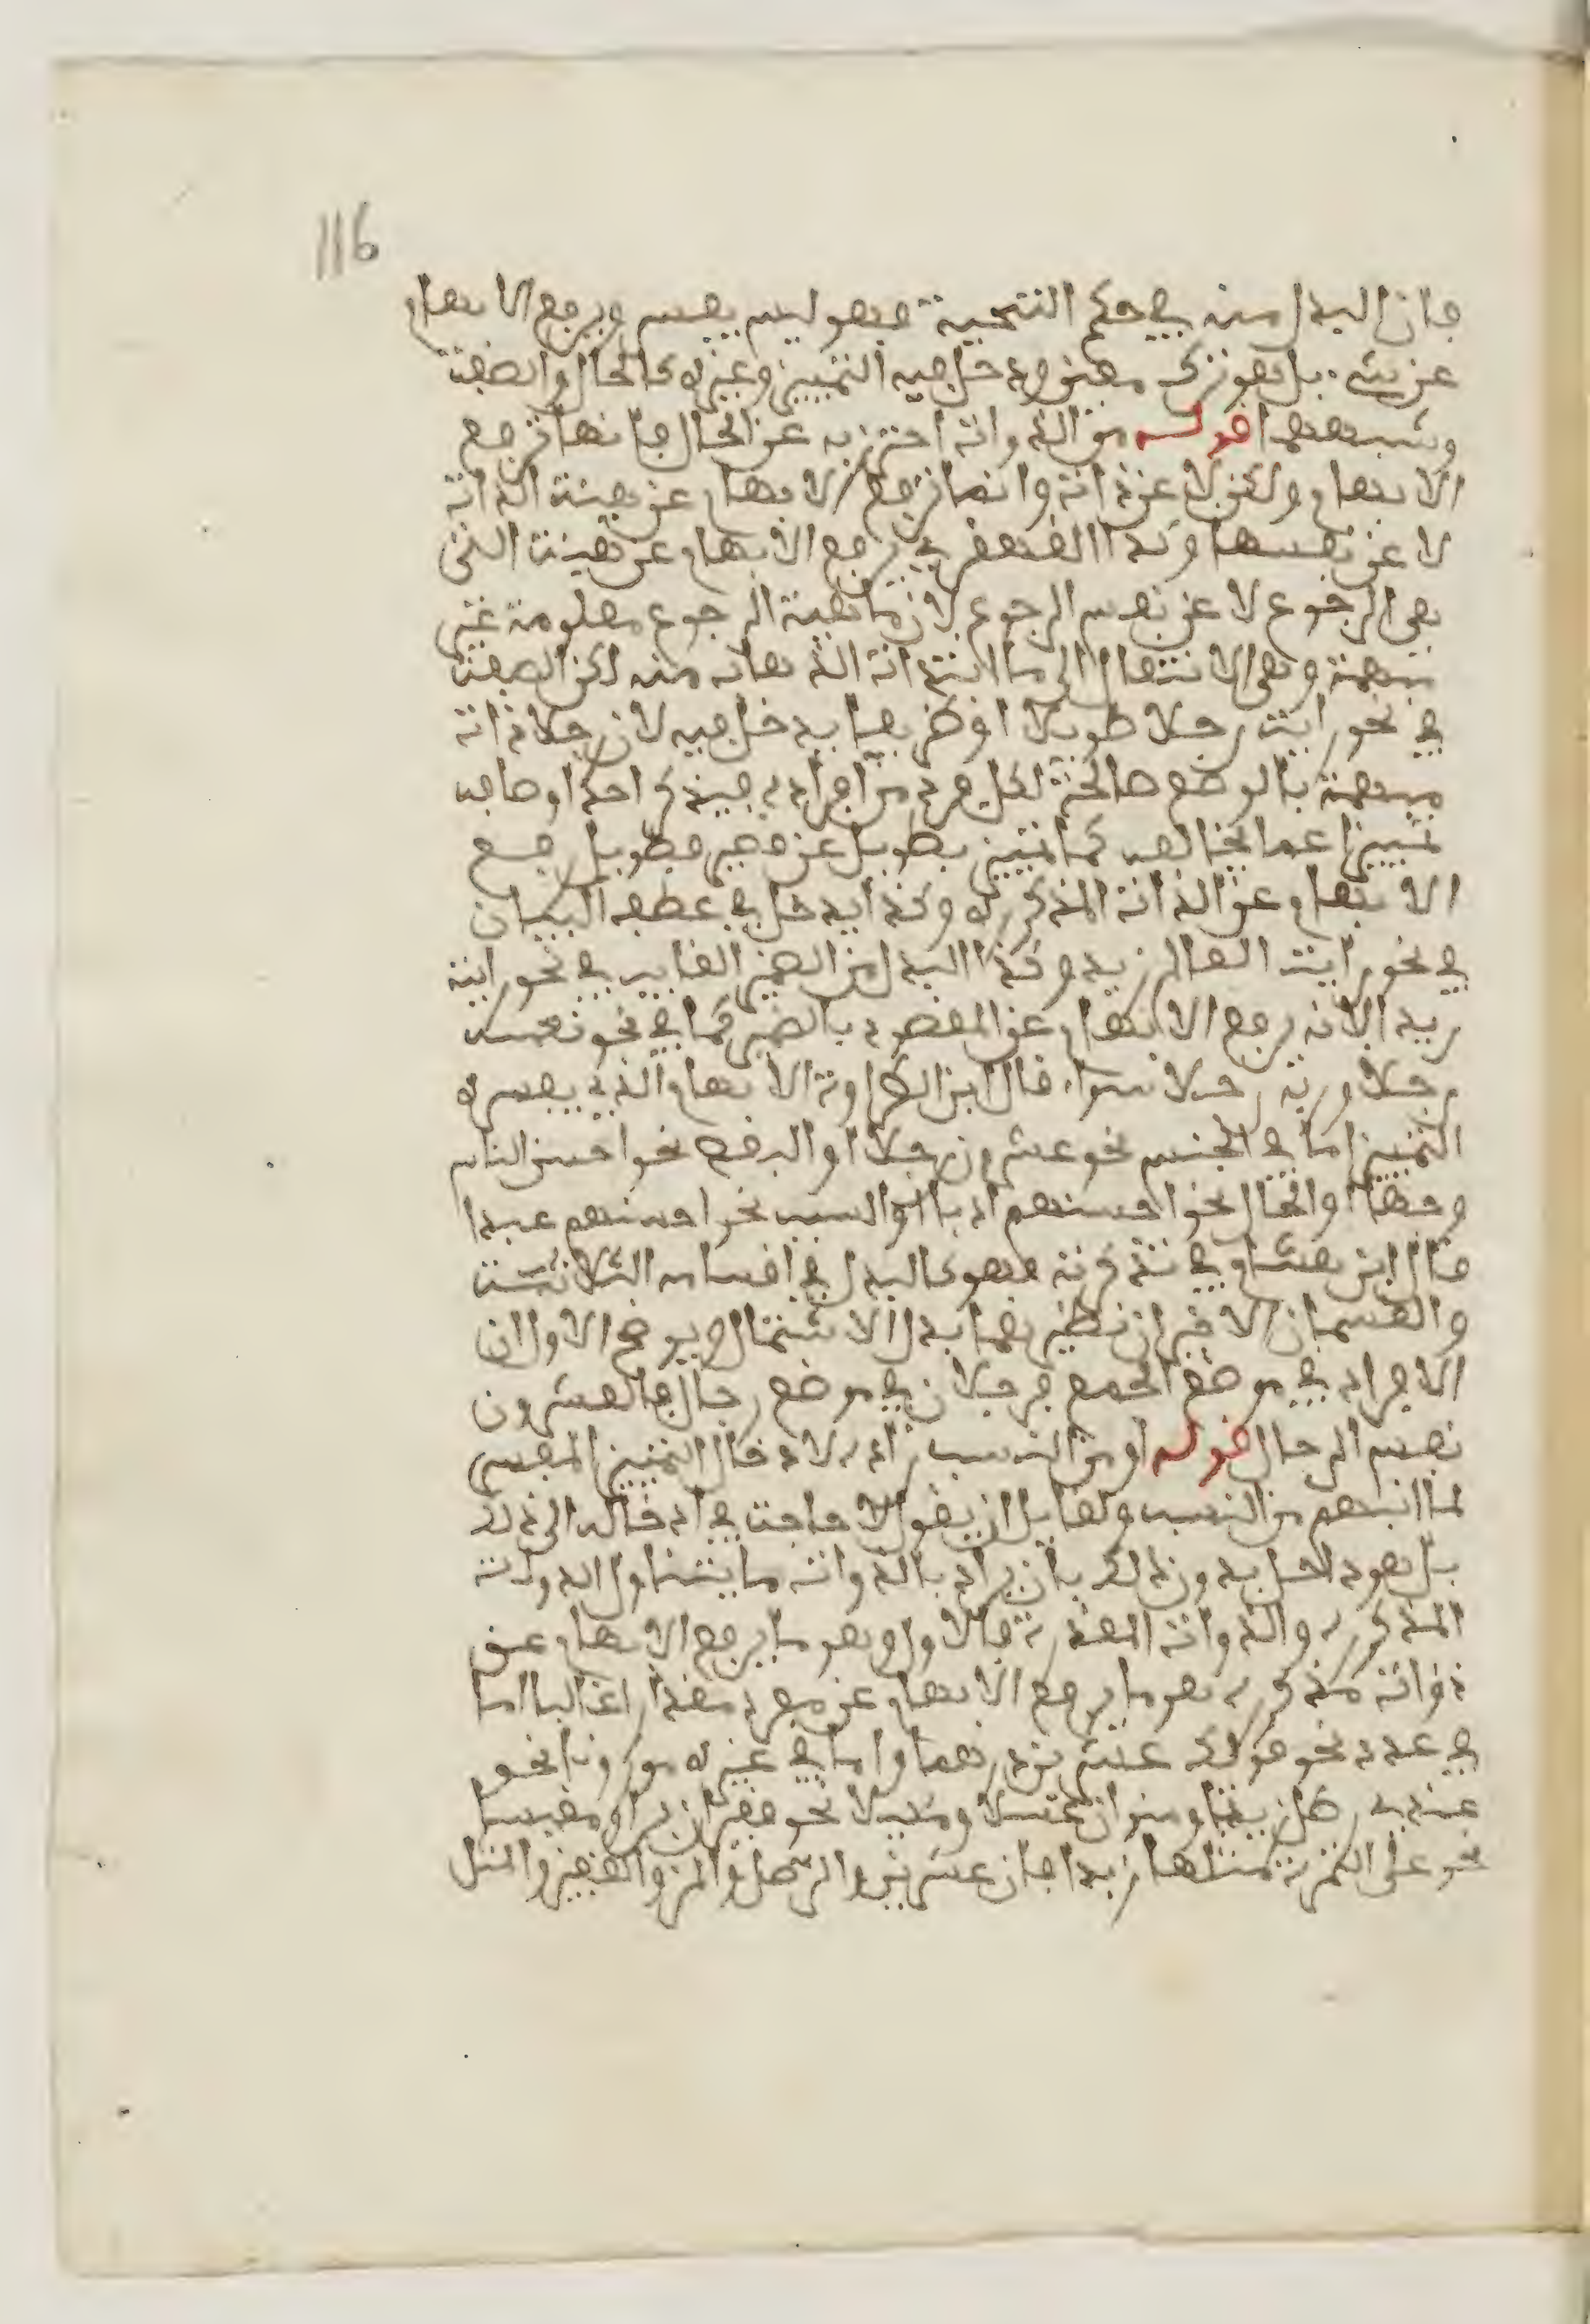 116
فان البدل منه في حكم التنحية فهو ليس يفسر ويرفع الابهام
عن شيء بل هو ترك مبهم ودخل فيه التمييز وغيره كالحال والصفة
وشبههما قوله من الذوات احترز به عن الحال فانها ترفع
الابهام ولكن لا عن ذات وانما ترفع الابهام عن هيئة الذات
لا عن نفسها وكذا القهقرى يرفع الابهام عن هيئة الشيء
هي الرجوع لا عن نفس الرجوع لان ماهية الرجوع معلومة غير
مبهمة وهي الانتقال الى ما ابتدات الذهاب منه لكن الصفة
في نحو رايت رجلا طويلا او ظريفا يدخل فيه لان رجلا ذات
مبهمة بالوضع صالحة لكل فرد من افراده فبذكر احد اوصافه
تميز عما يخالفه كما تميز بطويل عن قصير فطويل رفع
الابهام عن الذات المذكورة وكذا يدخل في عطف البيان
في نحو رايت العالم زيد وكذا البدل من الضمير الغايب في نحو رايته
زيد الانه رفع الابهام عن المقصود بالضمير كما في نحو نعمه
رجلا وربه رجلا سواء قال ابن الطراوة الابهام الذي يفسره
التمييز اما في الجنس نحو عشرون رجلا او البعض نحو احسن الناس
وجها او الحال نحو احسنهم ادبا او السبب نحو احسنهم عبدا
قال ابن هشام في تذكرته فهو كالبدل في اقسامه الثلاثة
والقسمان الاخيران نظيرهما بدل الاشتمال ويوضح الاول ان
الافراد في موضع الجمع فرجلا في موضع رجال فالعشرون
نفس الرجال قوله او من النسب اراد لادخال التمييز المفسر
لما انبهم من النسب ولقايل ان يقول لا حاجة في ادخاله الى ذلك
بل هو داخل بدون ذلك بان يراد بالذوات ما يتناول الذوات
المذكورة والذوات المقدرة فالاول وهو ما يرفع الابهام عن
ذوات مذكورة هو ما يرفع الابهام عن مفرد مقدار غالبا اما
في عدد نحو قولك عشرين درهما واما في غيره موزونا نحو
عندي رطل زيتا ومنوان عسلا ومكيلا نحو قفيزان برا ومقيسا
نحو على التمرة مثلها زبدا فان عشرين والرطل والمن والقفيز والمثل